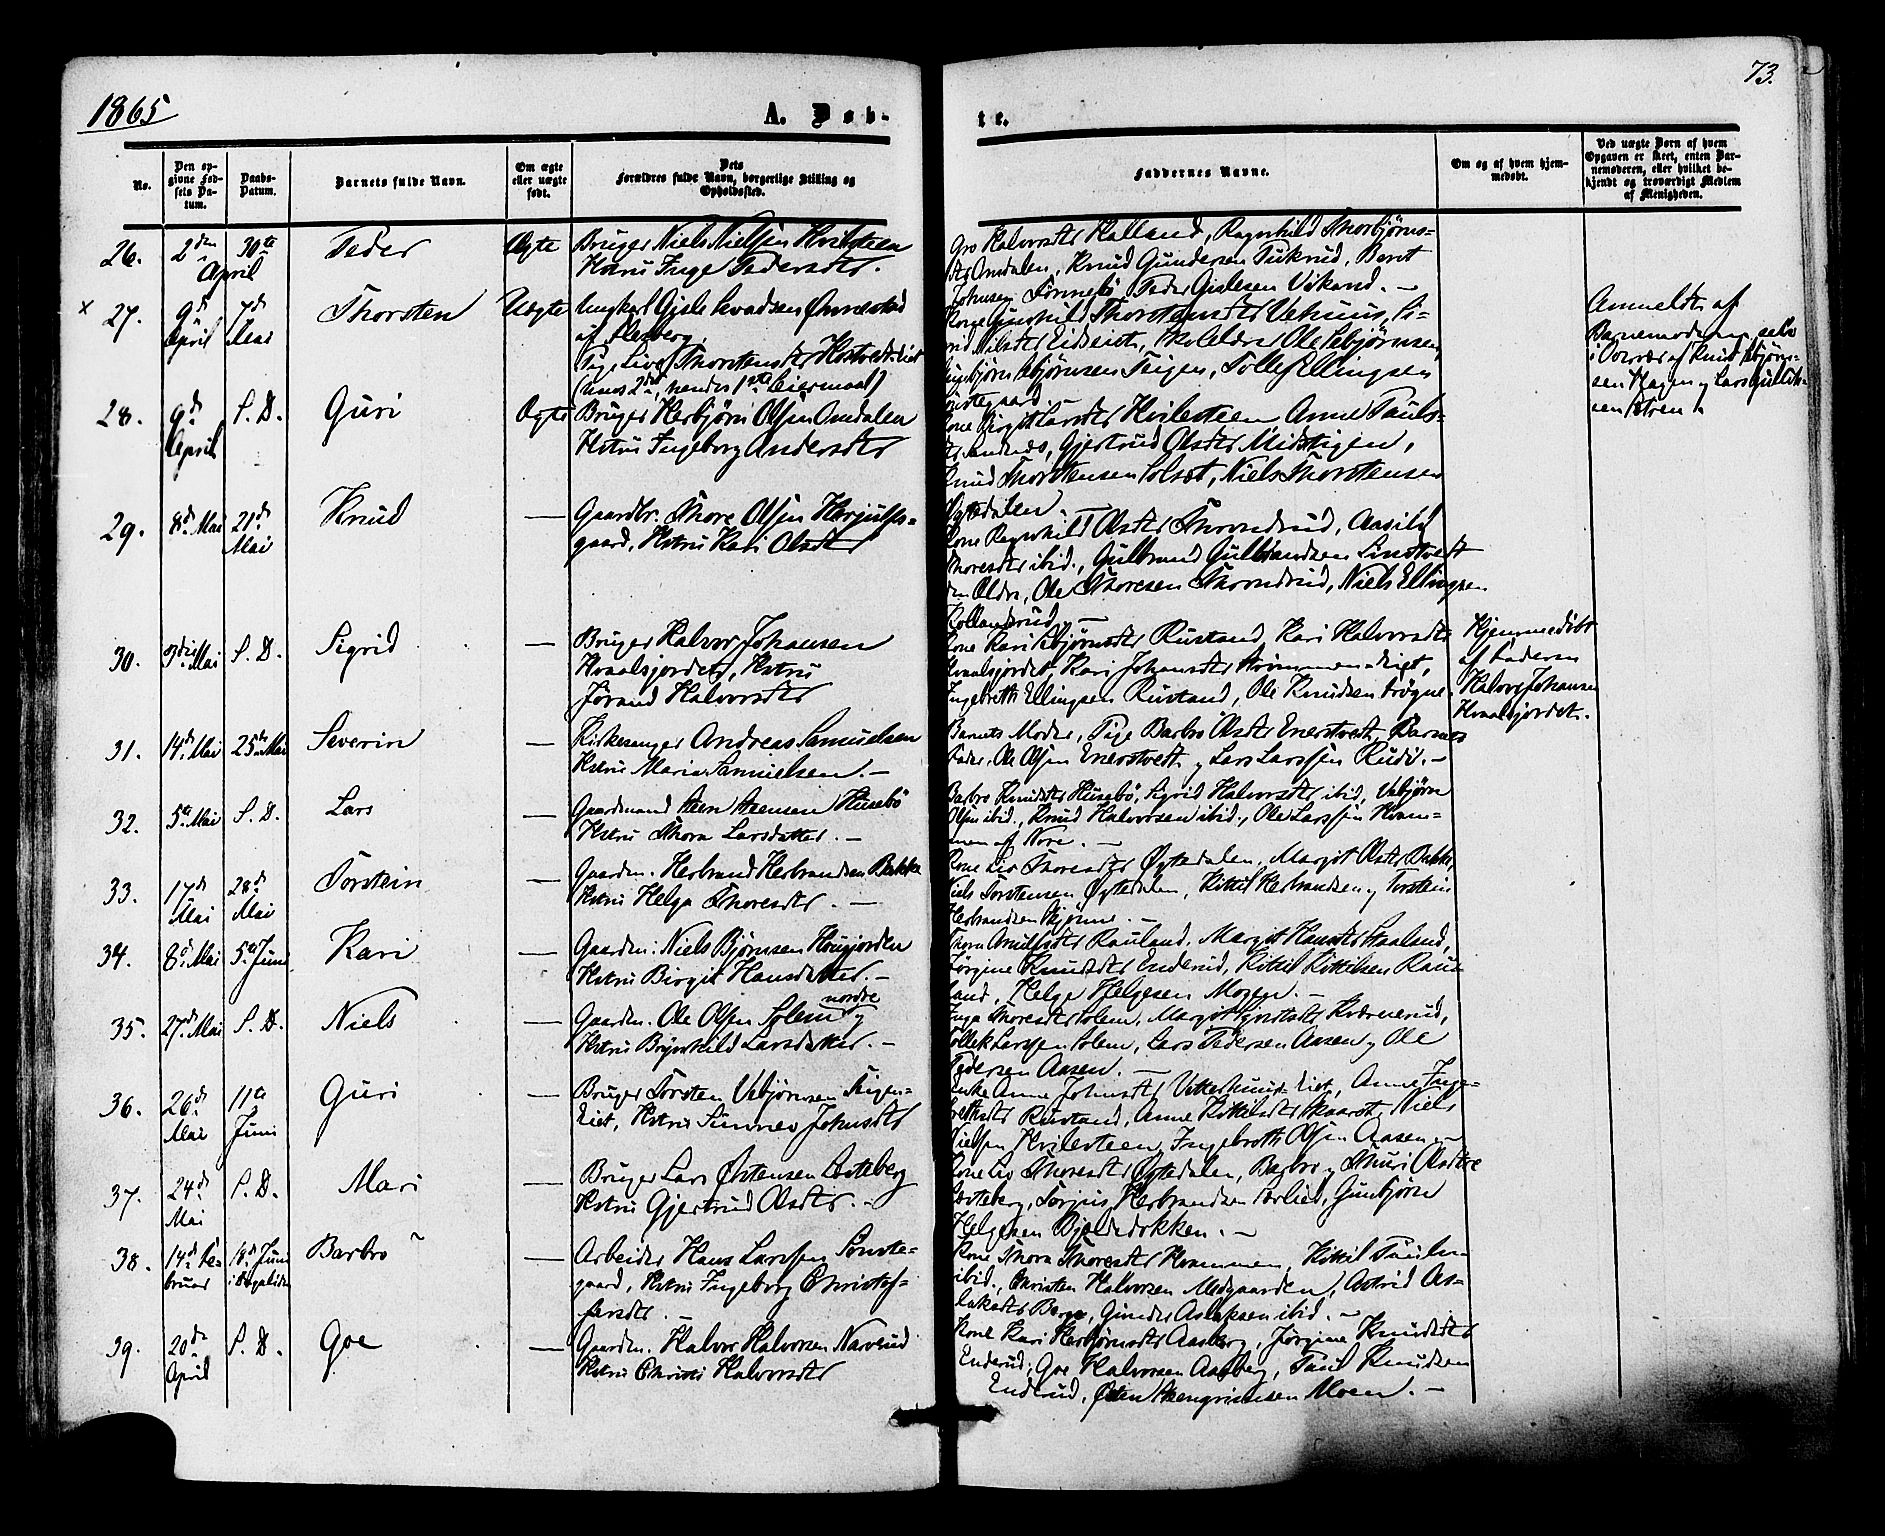 1865
A. Døb-
te.
73.
No.
Den op-
givne Fød-
sels Da-
tum.
Daabs-
Datum.
Barnets fulde Navn.
Om ægte
eller uægte
født.
Dets
Forældres fulde Navn, borgerlige Stilling og
Opholdssted.
Faddernes Navne.
Om og af hvem hjem-
medøbt.
Ved uægte Børn af hvem
Opgaven er skeet, enten Bar-
nemoderen, eller hvilket be-
kjendt og troværdigt Medlem
af Menigheden.
26. 2den April 30te Peder Ægte
Bruger Niels Nielsen Hvilesteen
Hstru Inge Pedersdtr.
Gro Halvorsdtr Halland, Ragnhild Thorbjørns-
dtr Omdalen, Knud Gundersen Tukrud, Berit
Johnsen Fønnebö, Peder Gislesen Vikand. —
x 27. 9de April 7de Mai Thorsten Uægte
Ungkarl Gisle Ivadsen Ønnestad
af Flesberg,
Pige Live Thorstensdtr Hostvedteiet
(hans 2det, hendes 1ste Leiermaal)
Kone Gunhild Thorstensdtr Vehuus, Si-
grid Nilsdtr Eidseiet, Ole Sebjørnsen,
Gunbjørn Asbjørnsen Teigen, Tollef Ellingsen
Anmeldt af
Barnemoderen selv
i Overvær af Knud Asbjørn-
sen Hagen og Lars Gulliks-
sen
28. 9de April S. D. Guri Ægte
Bruger Herbjørn Olsen Omdalen
Hstru Ingeborg Andersdtr
Kone Birgit Larsdtr Hvilesteen Anne Pauls-
dtr Sandnes, Gjertrud Olsdtr Midstigen,
Knud Thorstensen Solset, Niels Thorstensen
Øgtedalen. —
29. 8de Mai 21de Mai Knud —
Gaardbr. Thore Olsen Hergulfs-
gaard, Hstru Kari Olsdtr
Kone Ragnhild Olsdtr Thorndrud, Aasild
Thoresdtr ibid., Gulbrand Gulbrandsen Sindtvedt
den Ældre, Ole Thoresen Thorndrud, Niels Ellingsen
Kollandsrud. —
30. 3die Mai S. D. Sigrid —
Bruger Halvor Johansen
Hvaalsjordet, Hstru
Jørand Halvorsdtr
Kone Kari Asbjørnsdtr Rustand, Kari Halvorsdtr
Hvaalsjordet, Kari Johansdtr Strømmen-Eiet,
Ingebreth Ellingsen Rustand, Ole Knudsen Trøgne.
Hjemmedöbt
af Faderen
Halvor Johansen
Hvaalsjordet.
31. 14de Mai 25de Mai Severin —
Kirkesanger Andreas Samuelsen
Hstru Maria Samuelsen. —
Barnets Moder, Pige Barbro Olsdtr Enerstvedt, Barnets
Fader, Ole Olsen Enerstvedt og Lars Larssen Rudi. —
32. 5te Mai S. D. Lars —
Gaardmand Steen Steensen Husebö
Hstru Thora Larsdatter. —
Barbro Knudsdtr Husebö, Sigrid Halvorsdtr ibid, Vebjørn
Olsen ibid., Knud Halvorsen ibid., Ole Larssen Kram-
men af Nore. —
33. 17de Mai 28de Mai Torstein —
Gaardm. Herbrand Herbrandsen Bakke
Hstru Helga Thoresdtr. —
Kone Liv Thoresdtr Øgtedalen, Margit Olsdtr Bakke,
Niels Torstensen Øgtedalen, Kittil Herbrandsen og Torstein
Herbrandsen Skjønne. —
34. 8de Mai 5te Juni Kari —
Gaardm: Niels Bjørnsen Haugjorden
Hstru Birgit Hansdatter. —
Thora Arnulfsdtr Rauland, Margit Hansdtr Staaland,
Jørgine Knudsdtr Enderud, Kittil Kittilsen Rau-
land, Helge Helgesen Mogen. —
35. 27de Mai S. D. Niels —
Gaardm. Ole Olsen Solem nordre og
Hstru Brynhild Larsdatter. —
Inga Thoresdtr Solem, Margit Syvertsdtr Kværnerud,
Tollek Larssen Solem, Lars Pedersen Aasen og Ole
Pedersen Aasen. —
36. 26de Mai 11te Juni Guri —
Bruger Torsten Vebjørnsen Teigen-
Eiet, Hstru Sunnev Johnsdtr
Enke Anne Johnsdtr Vetterhuus-Eiet, Anne Inge-
brethsdtr Rustand, Anne Kittilsdtr Skaaret, Niels
Nielsen Hvilesteen, Ingebreth Olsen Aasen. —
37. 24de Mai S. D. Mari —
Bruger Lars Østensen Loteberg
Hstru Gjertrud Olsdtr. —
Kone Liv Thoresdtr Øgtedalen, Barbro og Thuri Olsdtre
Loteberg, Torjus Herbrandsen Sørlied, Gunbjørn
Helgesen Bjeldedokken. —
38. 14de Februar 18de Juni i Opdalskn Barbro —
Arbeider Hans Larssen Tønste-
gaard, Hstru Ingeborg Christof-
fersdtr. —
Kone Thora Thoresdtr Krammen, Kittil Paulsen
ibid., Christen Halvorsen Medgaarden, Astrid As-
laksdtr Berge, Gunder Aslaksen ibid. —
39. 20de April S. D. Goe —
Gaardm. Halvor Halvorsen Naverud
Hstru Christi Halvorsdtr
Kone Kari Herbjørnsdtr Aasberg, Jørgine Knudsdtr
Enderud, Goe Halvorsen Aasberg, Paul Knudsen
Enderud, Østen Steengrimsen Moen. —